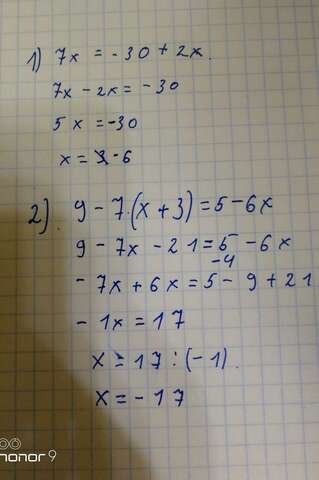 1) 7x = -30 + 2x.
7x - 2x = -30
5x = -30
x = -6
2). 9 - 7·(x + 3) = 5 - 6x
9 - 7x - 21 = 5 - 6x
-4
- 7x + 6x = 5 - 9 + 21
- 1x = 17
x = 17 : (-1).
x = - 17
honor 9